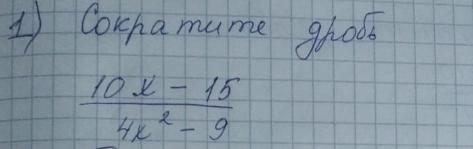 1) Сократите дробь
10x - 15
4x² - 9